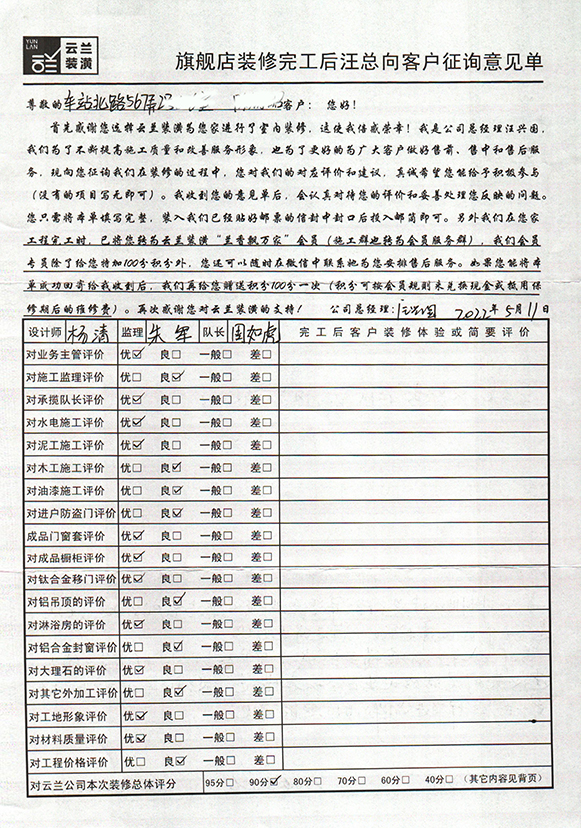 YUN LAN 云兰装潢
旗舰店装修完工后汪总向客户征询意见单
尊敬的车站北路567弄 客户：您好！
首先感谢您选择云兰装潢为您家进行了室内装修，这使我倍感荣幸！我是公司总经理汪兴国，
我们为了不断提高施工质量和改善服务形象，也为了更好的为广大客户做好售前、售中和售后服
务，现向您征询我们在装修的过程中，您对我们的对应评价和建议，真诚希望您能给予积极参与
（没有的项目写无即可）。我收到您的意见单后，会认真对待您的评价和妥善处理您反映的问题。
您只需将本单填写完整，装入我们已经贴好邮票的信封中封口后投入邮筒即可。另外我们在您家
工程完工时，已将您转为云兰装潢“兰香飘万家”会员（施工群也转为会员服务群），我们会员
专员除了给您特加100分积分外，您还可以随时在微信中联系她为您安排售后服务。如果您能将本
单成功回寄给我收到后，我们再给您赠送积分100分一次（积分可按会员规则来兑换现金或抵用保
修期后的维修费）。再次感谢您对云兰装潢的支持！ 公司总经理：汪兴国 2022年5月11日
设计师 杨清 监理 朱军 队长 周如虎 完工后客户装修体验或简要评价
对业务主管评价 优☑ 良☐ 一般☐ 差☐
对施工监理评价 优☐ 良☑ 一般☐ 差☐
对承揽队长评价 优☑ 良☐ 一般☐ 差☐
对水电施工评价 优☑ 良☐ 一般☐ 差☐
对泥工施工评价 优☑ 良☐ 一般☐ 差☐
对木工施工评价 优☐ 良☑ 一般☐ 差☐
对油漆施工评价 优☐ 良☑ 一般☐ 差☐
对进户防盗门评价 优☐ 良☑ 一般☐ 差☐
成品门窗套评价 优☑ 良☐ 一般☐ 差☐
对成品橱柜评价 优☑ 良☐ 一般☐ 差☐
对钛合金移门评价 优☑ 良☐ 一般☐ 差☐
对铝吊顶的评价 优☐ 良☑ 一般☐ 差☐
对淋浴房的评价 优☑ 良☐ 一般☐ 差☐
对铝合金封窗评价 优☐ 良☑ 一般☐ 差☐
对大理石的评价 优☑ 良☐ 一般☐ 差☐
对其它外加工评价 优☐ 良☑ 一般☐ 差☐
对工地形象评价 优☑ 良☐ 一般☐ 差☐
对材料质量评价 优☑ 良☐ 一般☐ 差☐
对工程价格评价 优☐ 良☑ 一般☐ 差☐
对云兰公司本次装修总体评分 95分☐ 90分☑ 80分☐ 70分☐ 60分☐ 40分☐ （其它内容见背页）